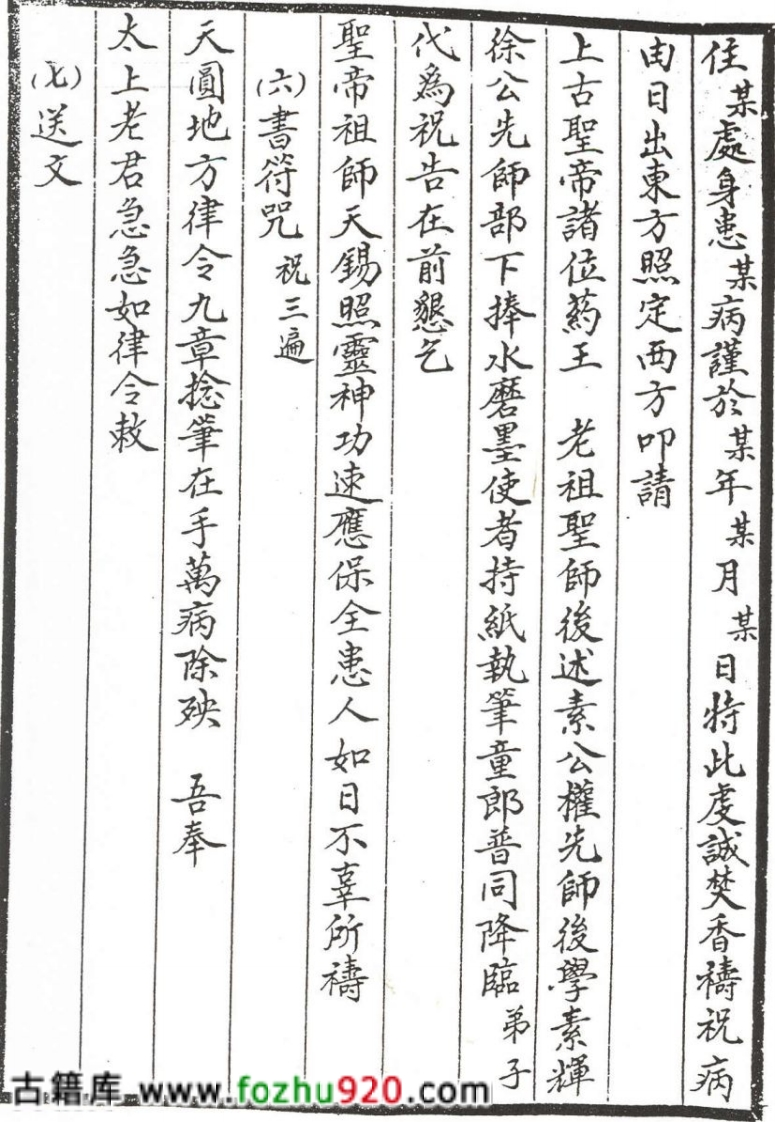 住某處身患某病謹於某年某月某日特此虔誠焚香禱祝病
由日出東方照定西方叩請
上古聖帝諸位药王　老祖聖師後述素公權先師後學素輝
徐公先師部下捧水磨墨使者持紙執筆童郎普同降臨弟子
代為祝告在前懇乞
聖帝祖師天錫照靈神功速應保全患人如日不辜所禱
(六)書符咒祝三遍
天圓地方律令九章捻筆在手萬病除殃　吾奉
太上老君急急如律令敕
(七)送文
古籍库 www.fozhu920.com